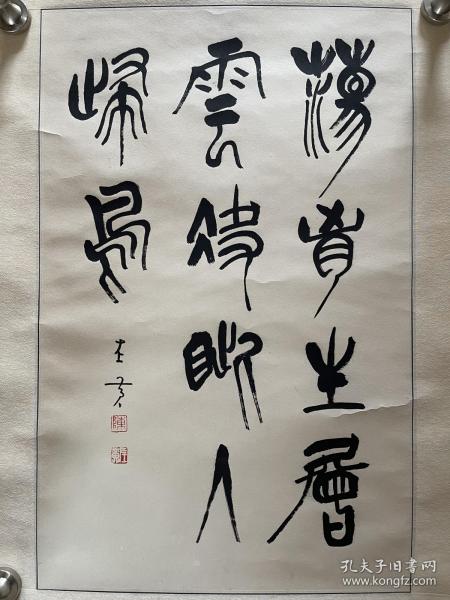 蕩胷生層
雲決眦入
歸鳥
左黄
陳
左黄
孔夫子旧书网
www.kongfz.com